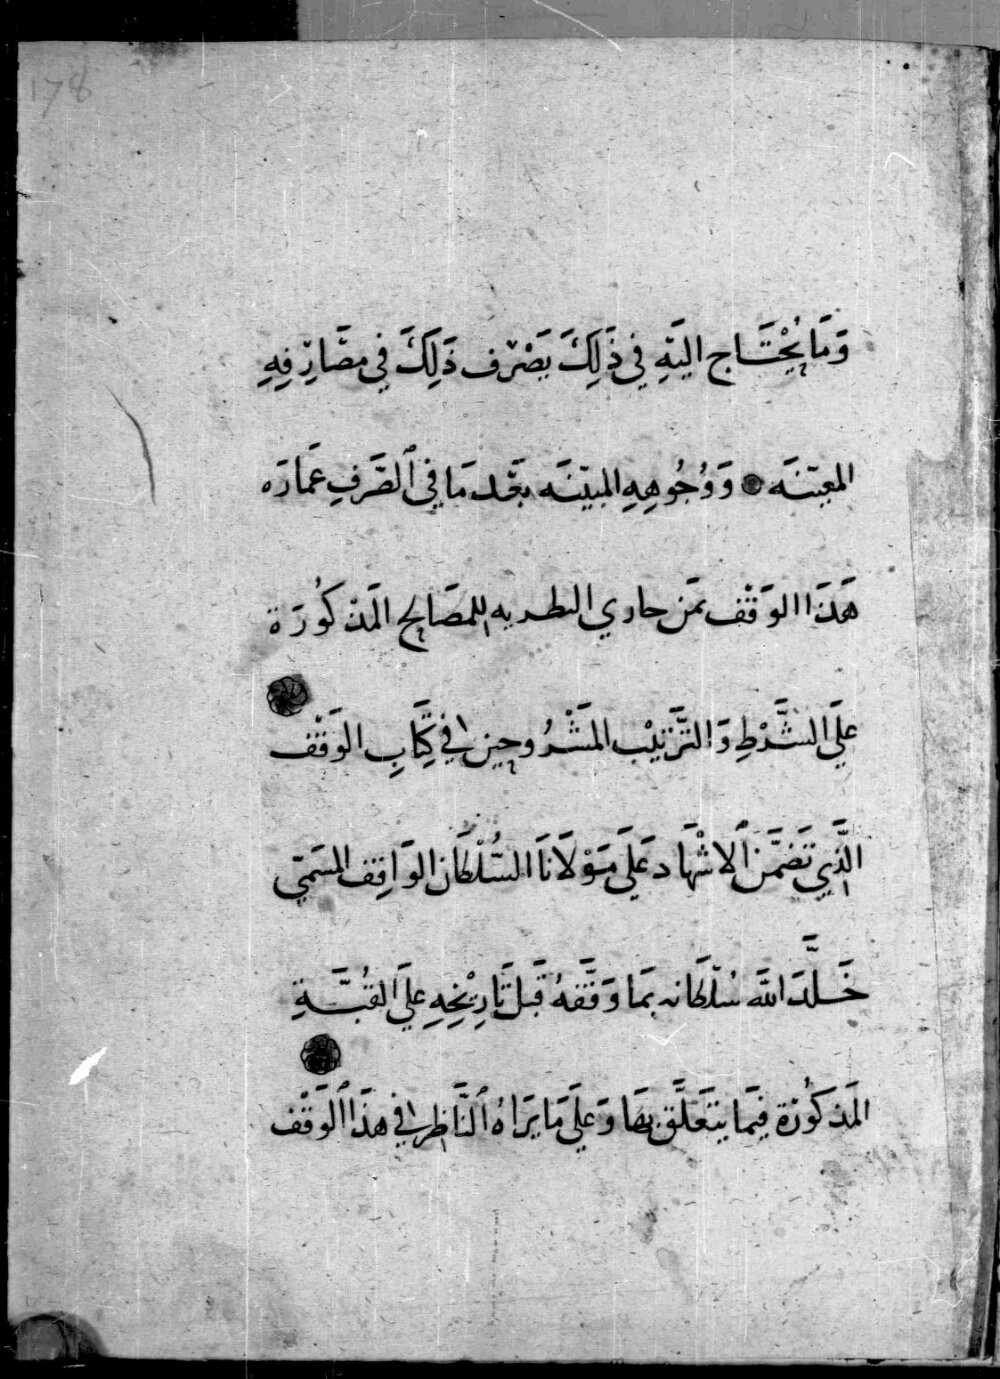 178
وَمَا يُحْتَاج اليَهِ فِي ذَلِكَ يَصْرْف ذَلِكَ فِي مصَارِفِهِ
المعيّنَه وَوُجُوهِهِ المبيّنَه بعَد مَا فِي الصَّرَفِ عَمَارَه
هَذَا الوَقْف مَن جاري به للمصَالح المَذكُورَة
علَى الشَّرْطِ وَالتَّرْتِيْب المَشْرُوحين فِي كِتَابِ الوَقْف
الَّذِي تَضَمَّن الاشْهَاد عَلَى مَوْلَانَا السُّلْطَان الوَاقِف المسَمّي
خَلَّدَ الله سُلْطَانه بمَا وَقَّفَهُ قَبل تَارِيْخِهِ علَي القُبَّةِ
المَذكُورَة فِيمَا يتَعَلَّق بهَا وَعلَى مَا يَرَاهُ النَّاظِر فِي هذَا الوَقْف